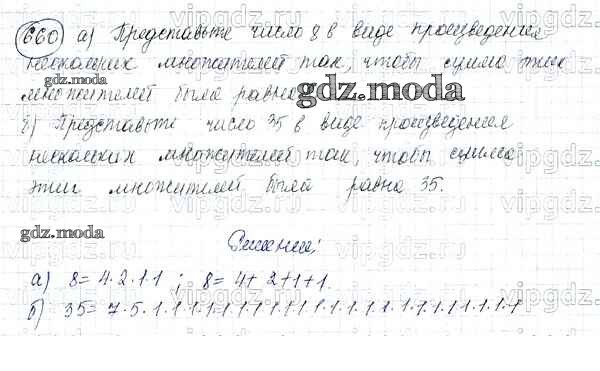 660 а) Представьте число 8 в виде произведения
нескольких множителей так, чтобы сумма этих
множителей была равна
б) Представьте число 35 в виде произведения
нескольких множителей так, чтобы сумма
этих множителей была равна 35.
Решение:
а) 8 = 4·2·1·1 ; 8 = 4+2+1+1.
б) 35 = 7·5·1·1·1·1·1·1·1·1·1·1·1·1·1·1·1·1·1·1·1·1·1·1·1
gdz.moda
gdz.moda
gdz.moda
vipgdz.ru